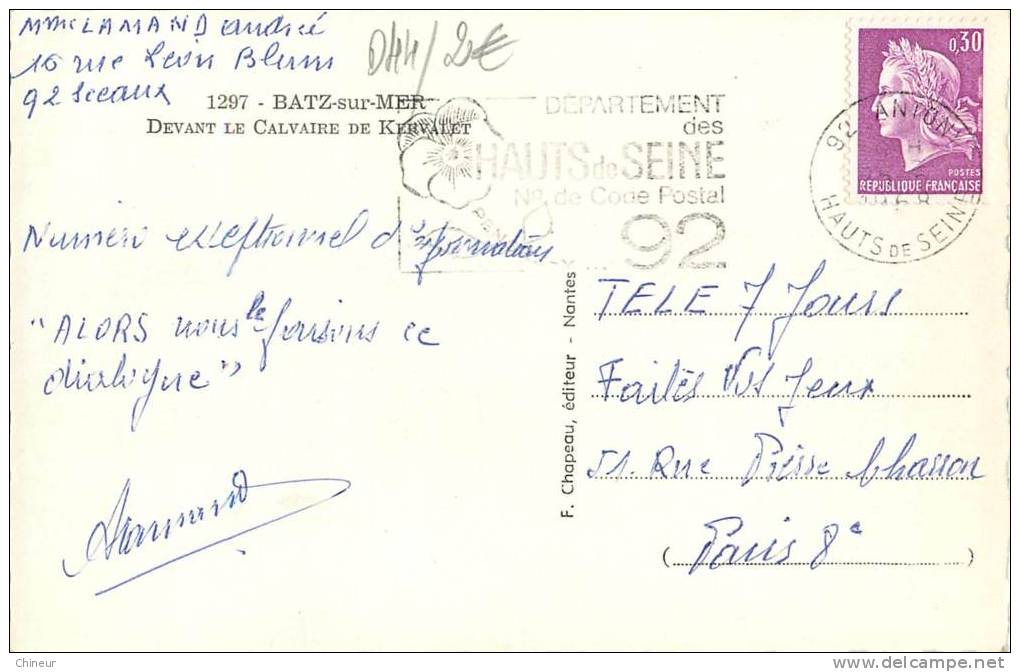 Mme LAMAND andrée
16 rue Léon Blum
92 Sceaux
D44/2€
1297 - BATZ-sur-MER
DEVANT LE CALVAIRE DE KERVALET
DÉPARTEMENT
des
HAUTS de SEINE
No. de Code Postal
92
0,30
POSTES
RÉPUBLIQUE FRANÇAISE
92 ANTONY
HAUTS DE SEINE
Numéro exceftionnel d'
"ALORS nous le faisons ce
dialogue"
Lamand
F. Chapeau, éditeur - Nantes
TELE 7 Jours
Faites Vos Jeux
51. Rue Pierre Charron
(Paris 8e)
Chineur
www.delcampe.net